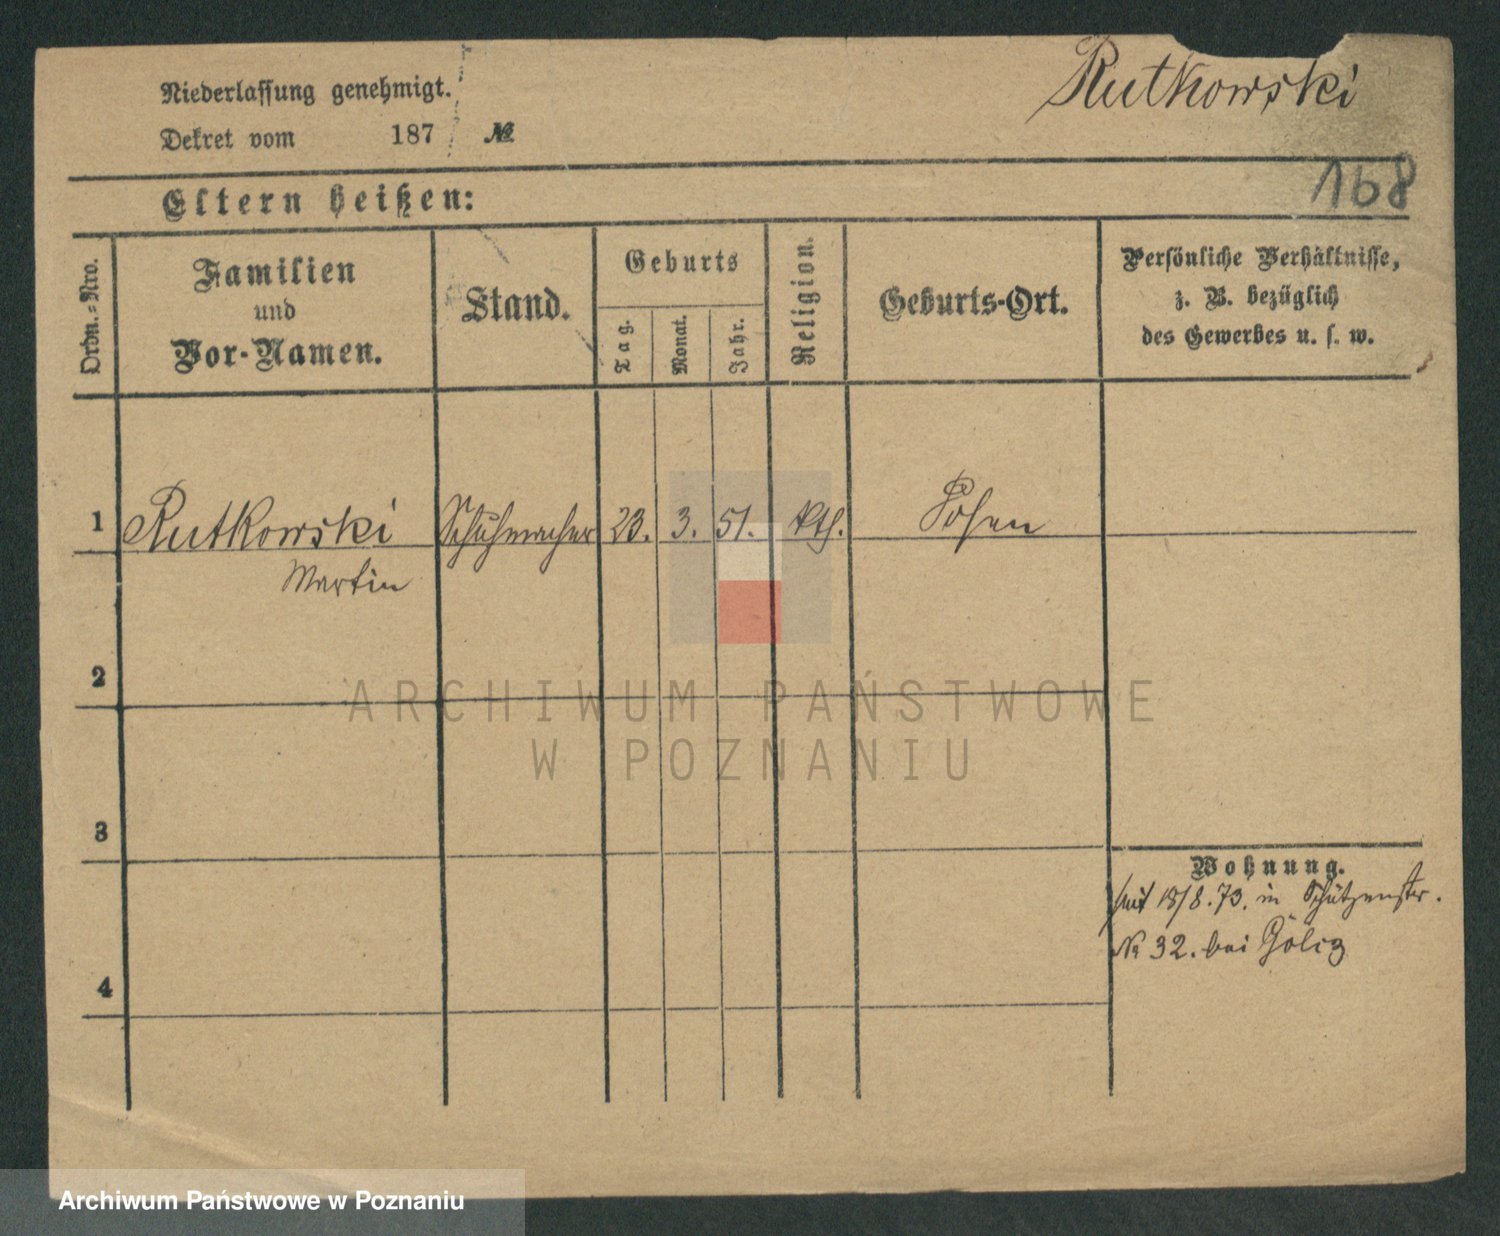 Rutkowski
Niederlassung genehmigt.
Dekret vom 187 №
168
Eltern heißen:
Ordn.-Nro.
Familien
und
Vor-Namen.
Stand.
Geburts
Tag.
Monat.
Jahr.
Religion.
Geburts-Ort.
Persönliche Verhältnisse,
z. B. bezüglich
des Gewerbes u. s. w.
1 Rutkowski Schuhmacher 23. 3. 51. kth. Posen
Martin
2
3
4
Wohnung.
seit 18/8.73. in Schützenstr.
№ 32. bei Gölcz
ARCHIWUM PAŃSTWOWE
W POZNANIU
Archiwum Państwowe w Poznaniu